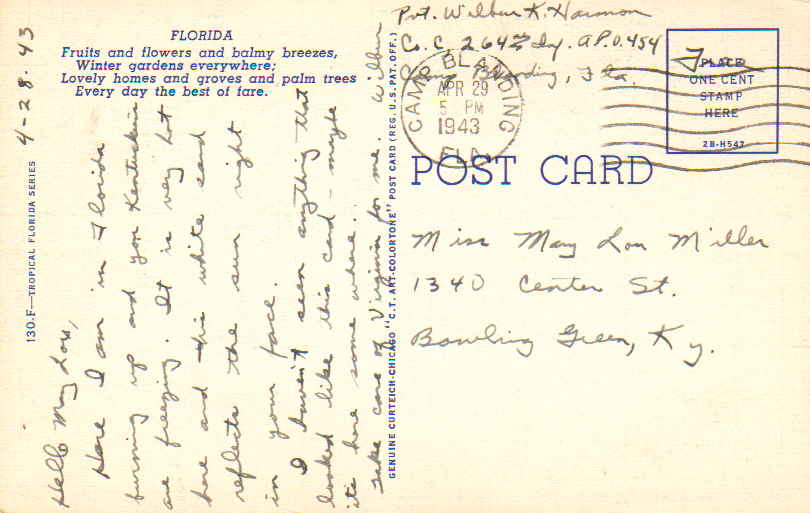 FLORIDA
Fruits and flowers and balmy breezes,
Winter gardens everywhere;
Lovely homes and groves and palm trees
Every day the best of fare.
4-28-43
Hello Mary Lou,
Here I am in Florida
burning up and you Kentuckians
are freezing. It is very hot
here and this white sand
reflects the sun right
in your face.
I haven't seen anything that
looked like this card - maybe
its here some where..
Take care of Virginia for me. Wilbur
130-F—TROPICAL FLORIDA SERIES
GENUINE CURTEICH-CHICAGO "C.T. ART-COLORTONE" POST CARD (REG. U.S. PAT. OFF.)
Pvt. Wilbur K. Harmon
Co. C. 264th Inf. A.P.O. 454
Camp Blanding, Fla.
CAMP BLANDING
APR 29
5 PM
1943
FLA
Free
PLACE
ONE CENT
STAMP
HERE
2B-H547
POST CARD
Miss Mary Lou Miller
1340 Center St.
Bowling Green, Ky.